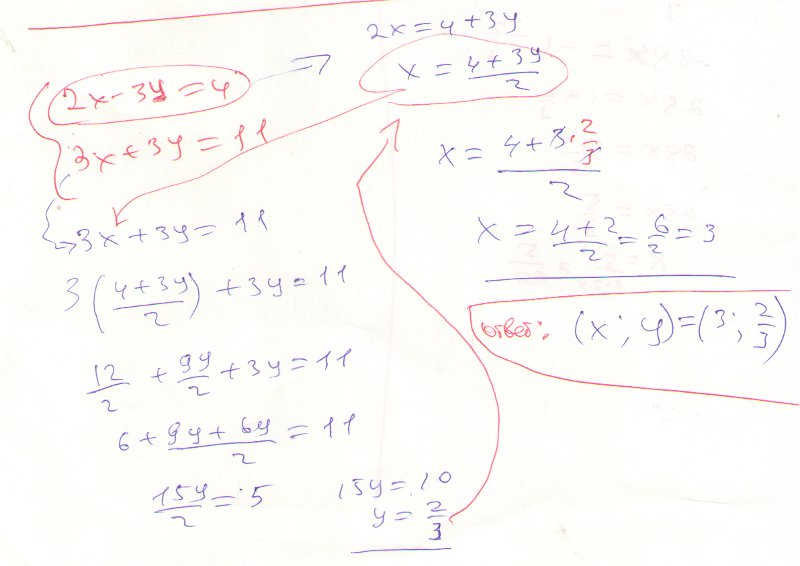 2x-3y=4
3x+3y=11
2x=4+3y
x=\frac{4+3y}{2}
3x+3y=11
3(\frac{4+3y}{2})+3y=11
\frac{12}{2}+\frac{9y}{2}+3y=11
6+\frac{9y+6y}{2}=11
\frac{15y}{2}=5
15y=10
y=\frac{2}{3}
x=\frac{4+3\cdot\frac{2}{3}}{2}
x=\frac{4+2}{2}=\frac{6}{2}=3
ответ: (x; y)=(3; \frac{2}{3})